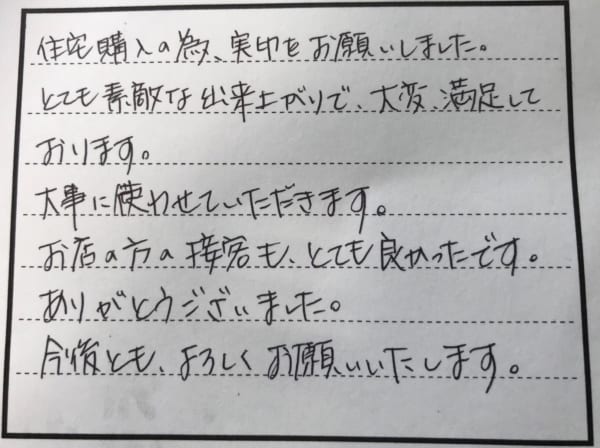 住宅購入の為、実印をお願いしました。
とても素敵な出来上がりで、大変、満足して
おります。
大事に使わせていただきます。
お店の方の接客も、とても良かったです。
ありがとうございました。
今後とも、よろしくお願いいたします。